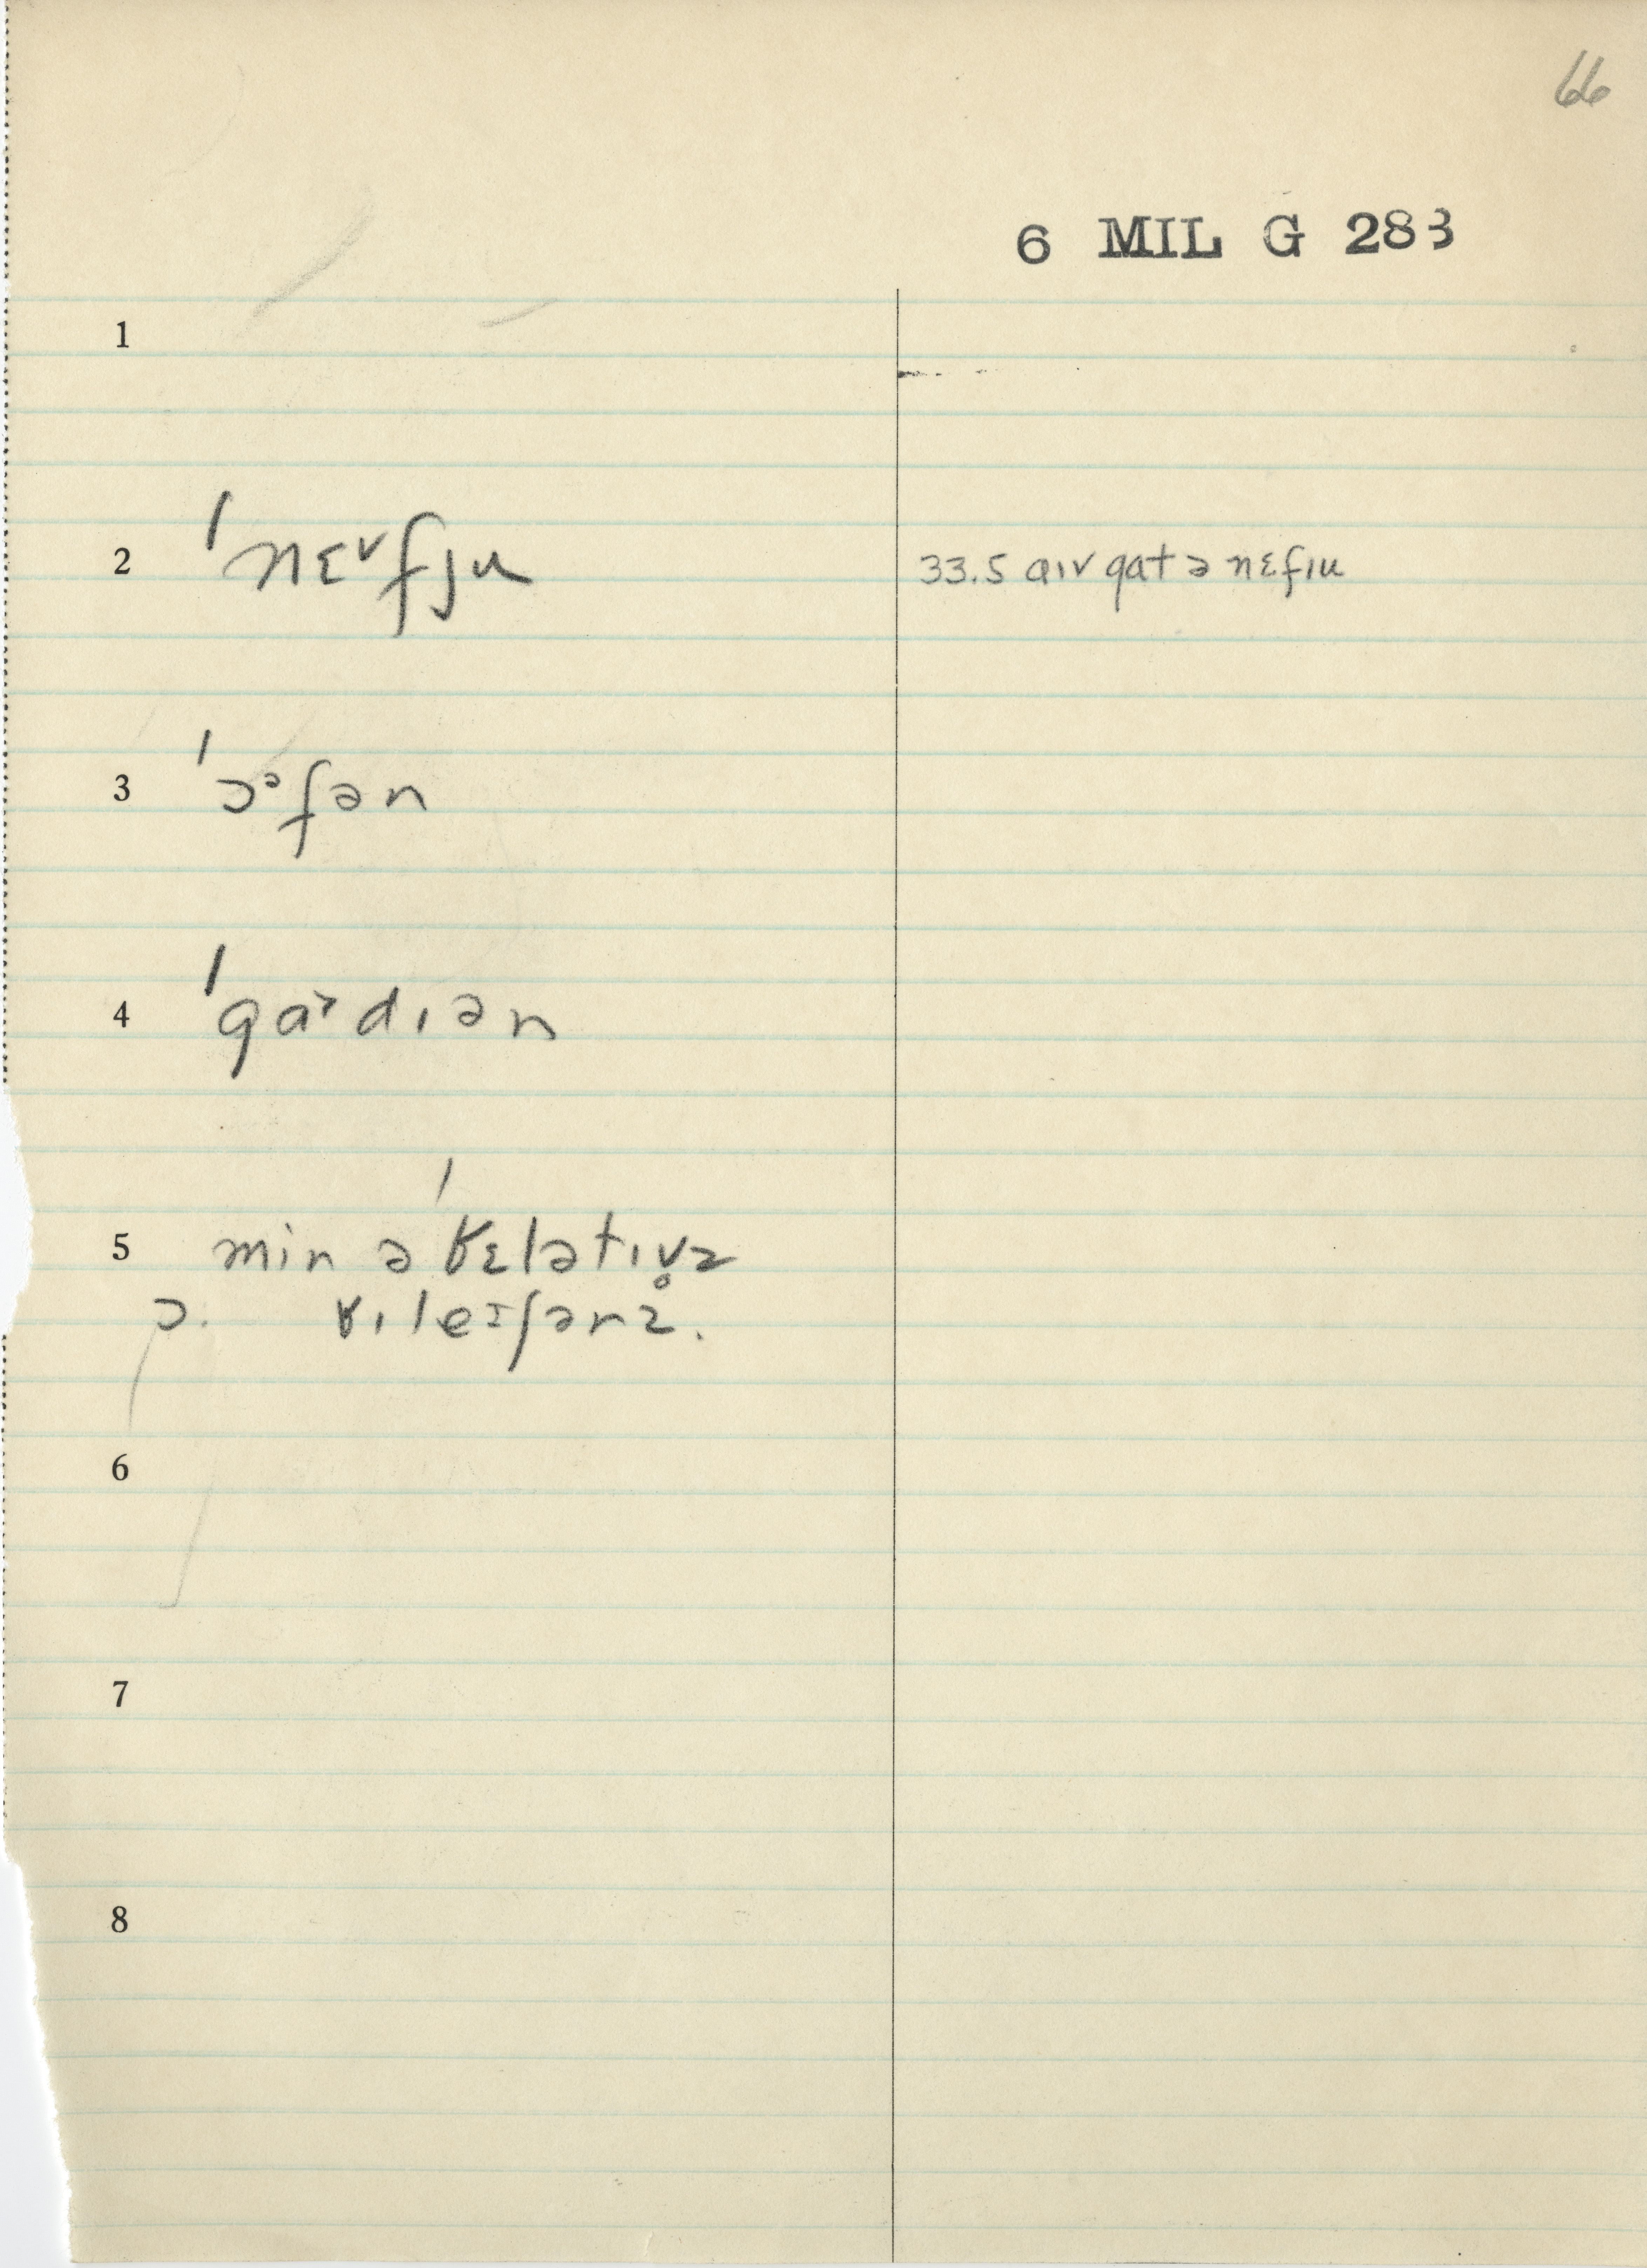 66
6 MIL G 283
1
2 ˈnɛ˅fju 33.5 aɪv gat ə nɛfɪu
3 ˈɔᵊfən
4 ˈgaɚdɪən
5 min ə ˈʁɛlətɪv̥z
ɔ. ʁɪleɪʃənz̥.
6
7
8